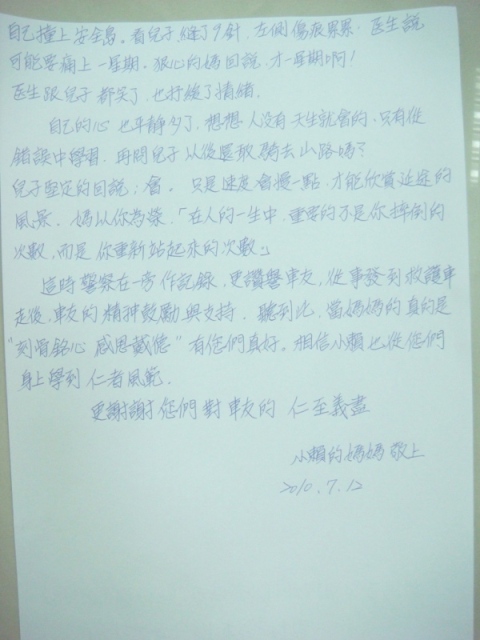 自己撞上安全島。看兒子縫了9針，左側傷痕累累，医生說
可能要痛上一星期。狠心的媽回說，才一星期啊！
医生跟兒子都笑了，也抒緩了情緒。
自己的心也平靜多了，想想人沒有天生就會的，只有從
錯誤中學習，再問兒子以後還敢騎去山路嗎？
兒子堅定的回說：會。只是速度會慢一點，才能欣賞延途的
風景，媽以你為榮，「在人的一生中，重要的不是你摔倒的
次數，而是你重新站起來的次數。」
這時警察在一旁作記錄，更讚譽車友，從事發到救護車
走後，車友的精神鼓勵與支持，聽到此，當媽媽的真的是
"刻骨銘心 感恩戴德"有您們真好。相信小賴也從您們
身上學到仁者風範．
更謝謝您們對車友的 仁至義盡
小賴的媽媽 敬上
2010.7.12